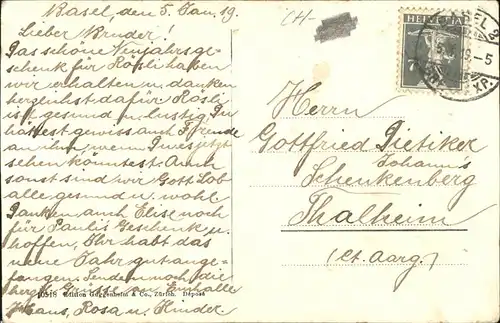 Basel, den 5. Jan. 19
Lieber Bruder!
Das schöne Neujahrsge-
schenk für Rösli haben
wir erhalten u. danken
herzlichst dafür Rösli
ist gesund u. lustig Du
hättest gewiss auch Freude
an ihm wenn Du es jetzt
sehen könntest. Auch
sonst sind wir Gott Lob
alle gesund u. wohl
Danken auch Elise noch
für Paulis Geschenk u.
hoffen, Ihr habt das
neue Jahr gut ange-
fangen. Senden noch die
herzl. Grüsse
Hans, Rosa u. Kinder.
10518 Edition Guggenheim & Co., Zürich. Déposé
CH-
HELVETIA
Herrn
Gottfried Dietiker
Johann's
Schenkenberg
Thalheim
(Ct. Aarg.)